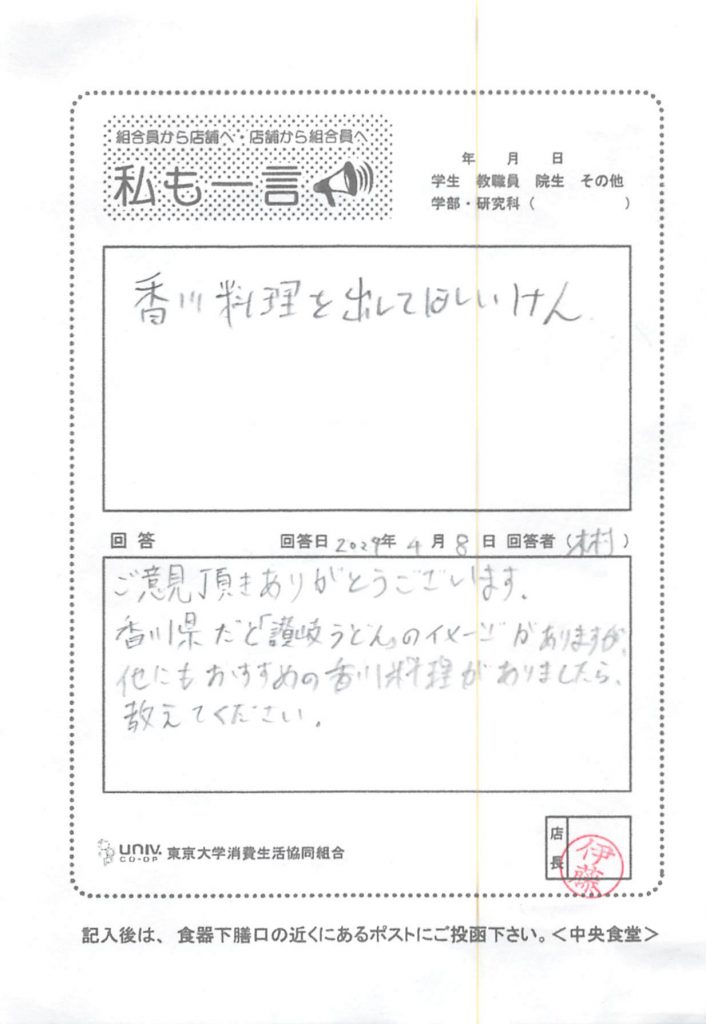 組合員から店舗へ・店舗から組合員へ
私も一言
年 月 日
学生 教職員 院生 その他
学部・研究科（ ）
香川料理を出してほしいけん
回答 回答日 2024年 4月 8日 回答者（木村）
ご意見頂きありがとうございます。
香川県だと「讃岐うどん」のイメージがありますが、
他にもおすすめの香川料理がありましたら、
教えてください。
UNIV. CO-OP 東京大学消費生活協同組合
店長
伊藤
記入後は、食器下膳口の近くにあるポストにご投函下さい。＜中央食堂＞